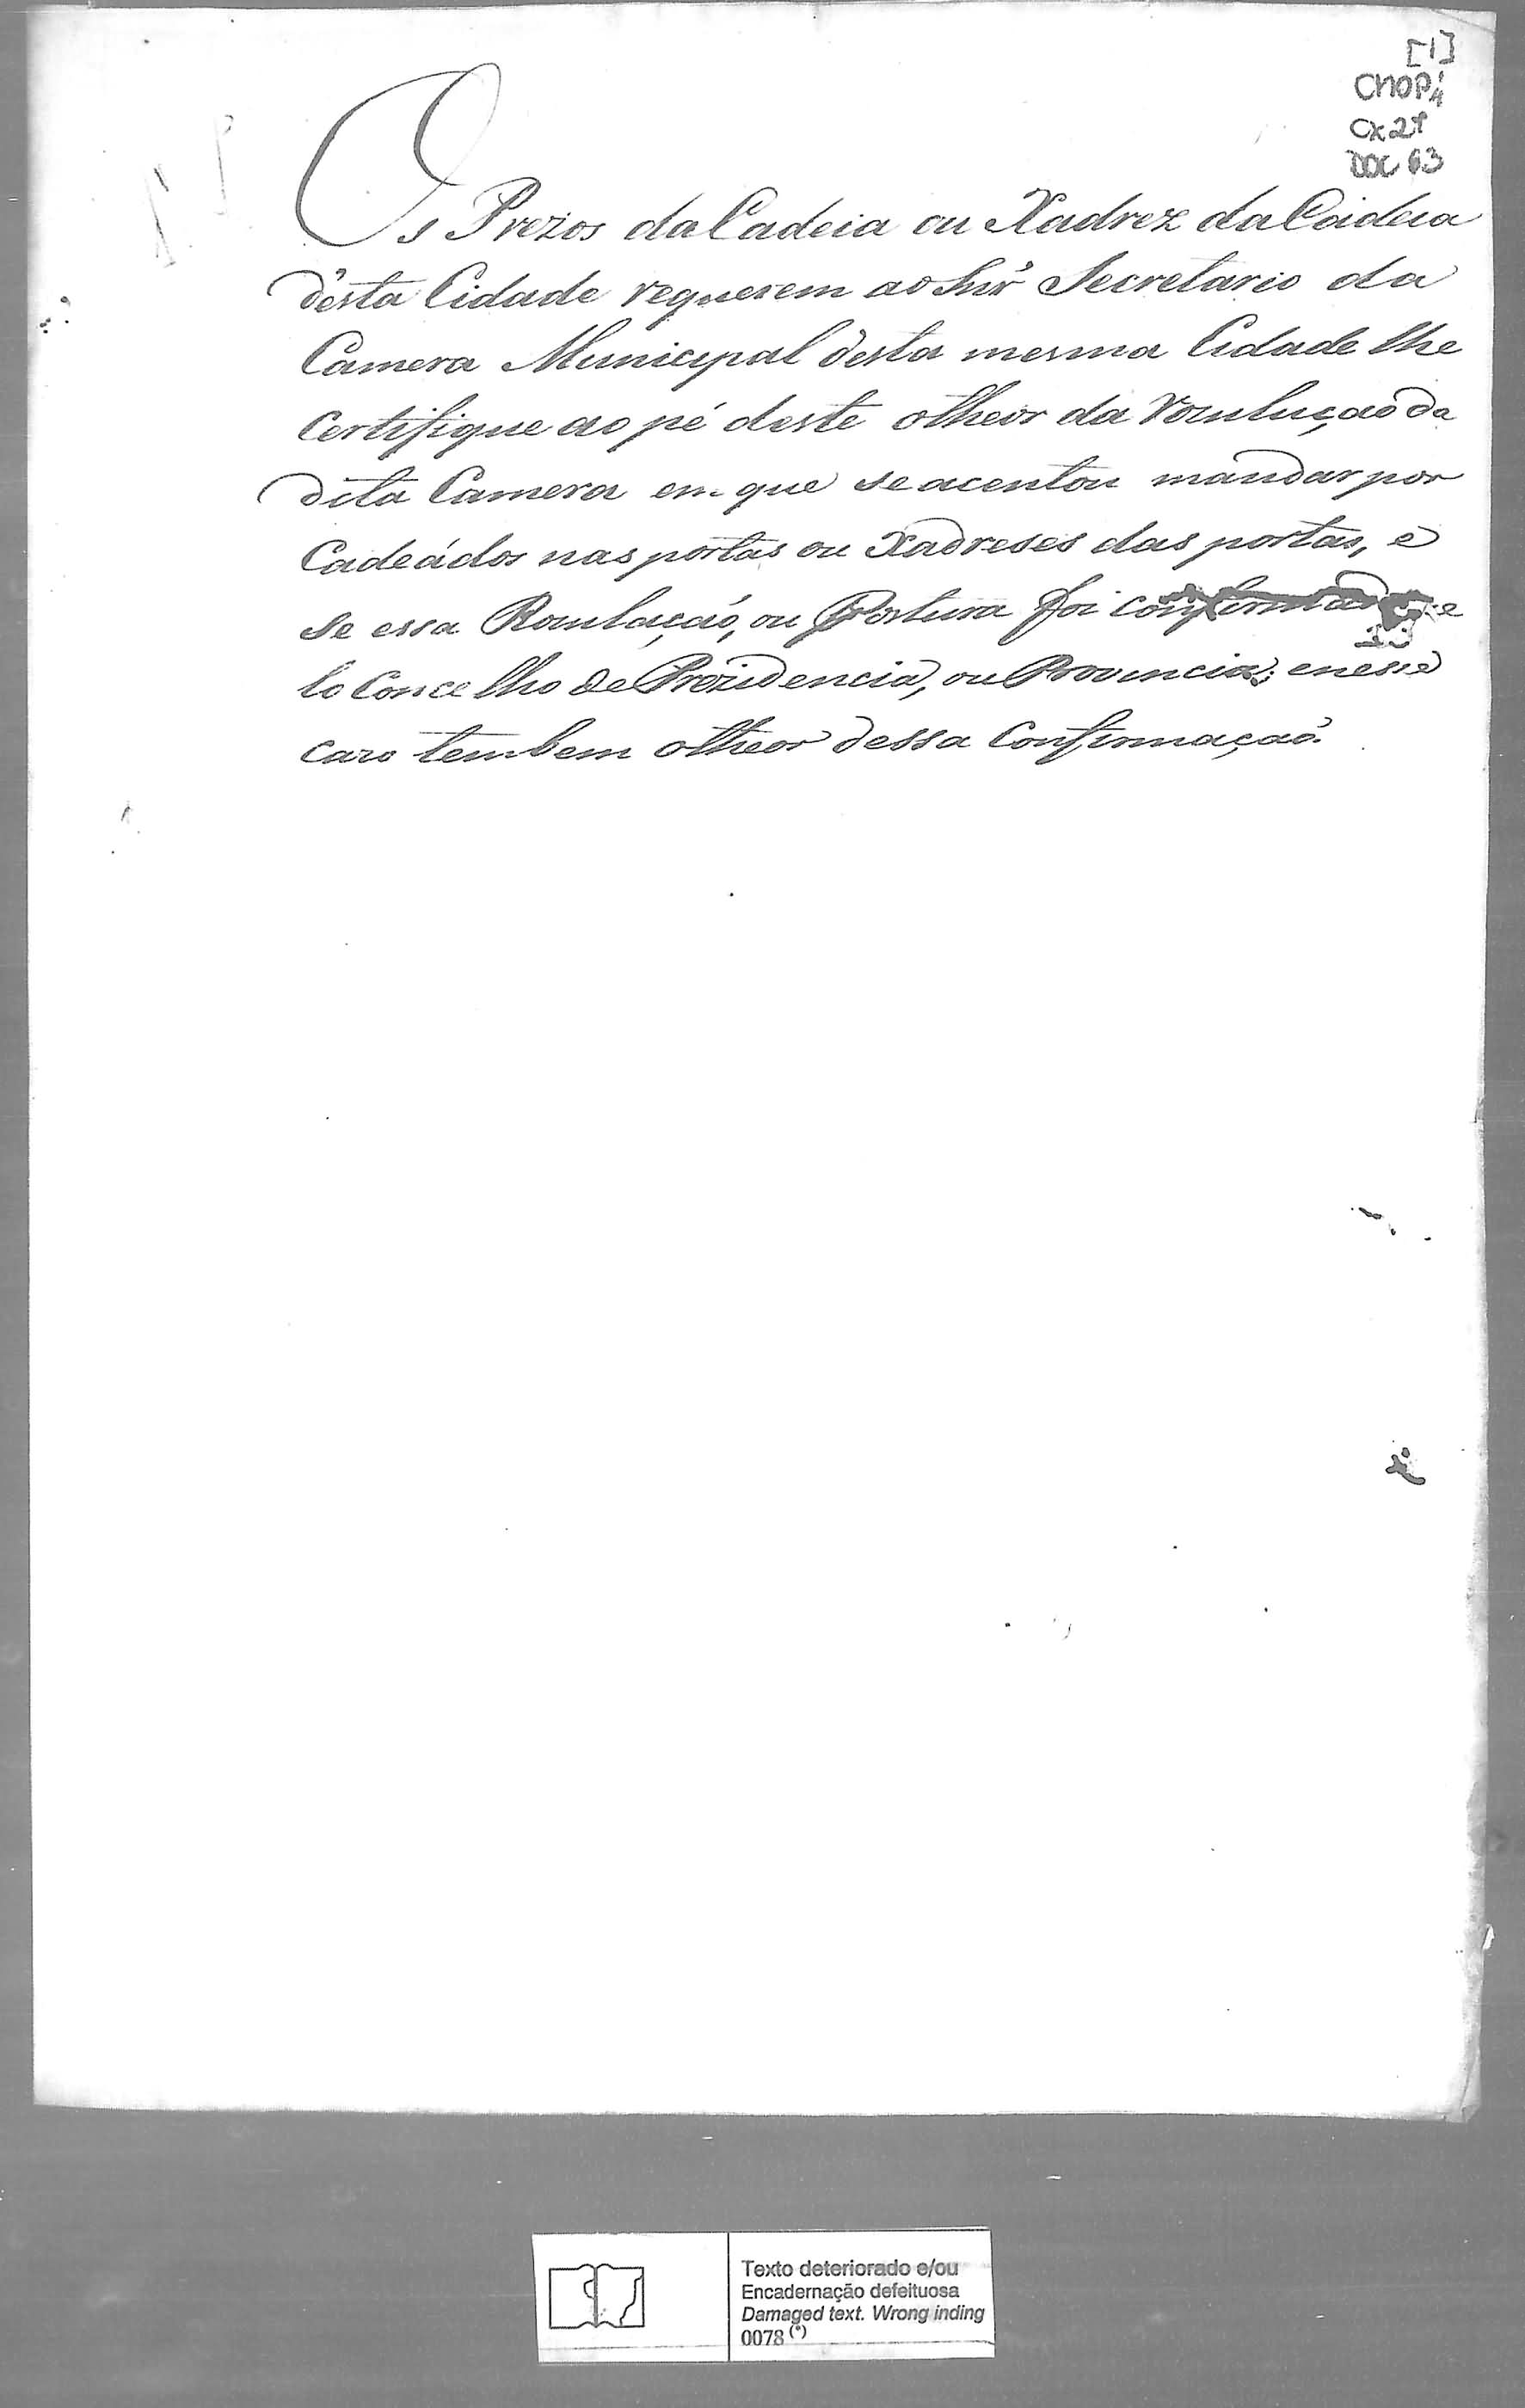 [1]
CMOP
Cx 21
DOC 63
Os Prezos da Cadeia ou Xadrez da Caideia
désta Cidade requerem ao Snr̃ Secretario da
Camera Municipal desta mesma Cidade lhe
Certifique ao pé deste otheor da Rezuluçaõ da
dita Camera em que se acentou mandar por
Cadeádos nas portas ou Xadreses das portas, e
se essa Rezulaçaõ, ou Postura foi confirmad pe
lo Concelho de Prezidencia, ou Provincia; enesse
cazo tembem otheor dessa Confirmaçaõ.
Texto deteriorado e/ou
Encadernação defeituosa
Damaged text. Wrong inding
0078 (*)